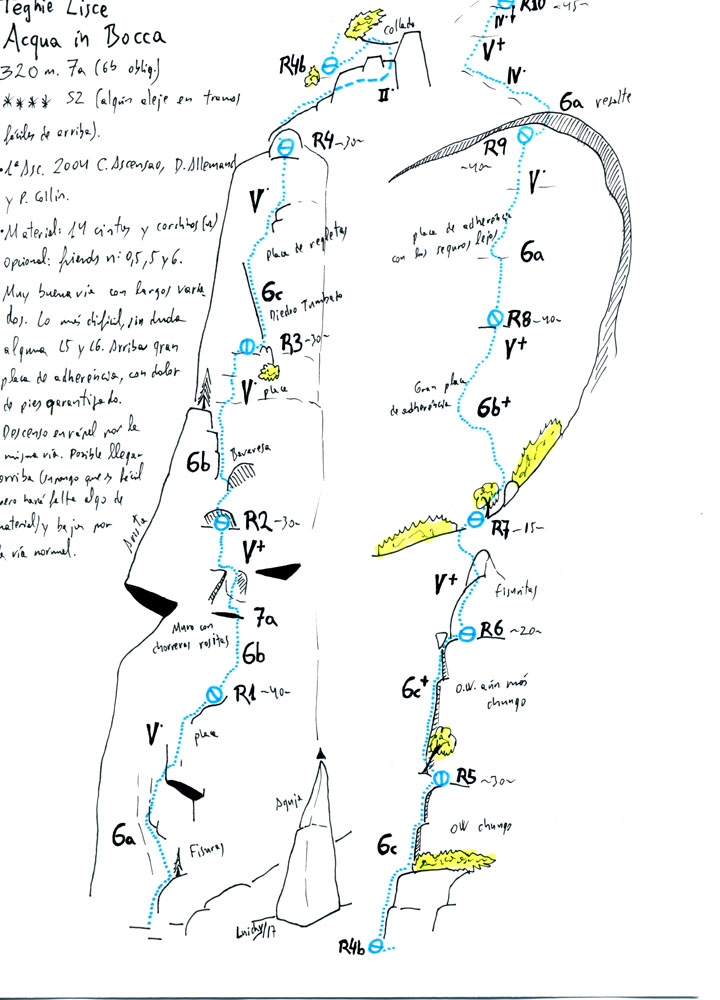 Teghie Lisce
Acqua in Bocca
320 m. 7a (6b oblig.)
**** S2 (algún aleje en tramos
fáciles de arriba).
•1ª Asc. 2004 C. Ascensao, D. Allemand
y P. Collin.
•Material: 14 cintas y corchitos
opcional: friends nº 0,5, 5 y 6.
Muy buena vía con largos varia-
dos. Lo más difícil, sin duda
alguna L5 y L6. Arriba gran
placa de adherencia, con dolor
de pies garantizado.
Descenso en rápel por la
misma vía. Posible llegar
arriba (supongo que es fácil
pero hará falta algo de
material) y bajar por
la vía normal.
Arista
Collado
R4b
II·
R4 ~30~
V·
placa de regletas
6c
Diedro Tumbado
R3 ~30~
V·
placa
6b
Bavaresa
R2 ~30~
V+
7a
Muro con
chorreras rositas
6b
R1 ~40~
V·
placa
6a
Fisuras
Aguja
Luichy/17
R10 ~45~
IV·
V+
IV·
6a resalte
R9
~40~
V·
placa de adherencia
con los seguros lejos
6a
R8 ~40~
V+
Gran placa
de adherencia
6b+
R7 ~15~
V+
Fisuritas
R6 ~20~
6c+
O.W. aún más
chungo
R5 ~30~
OW chungo
6c
R4b